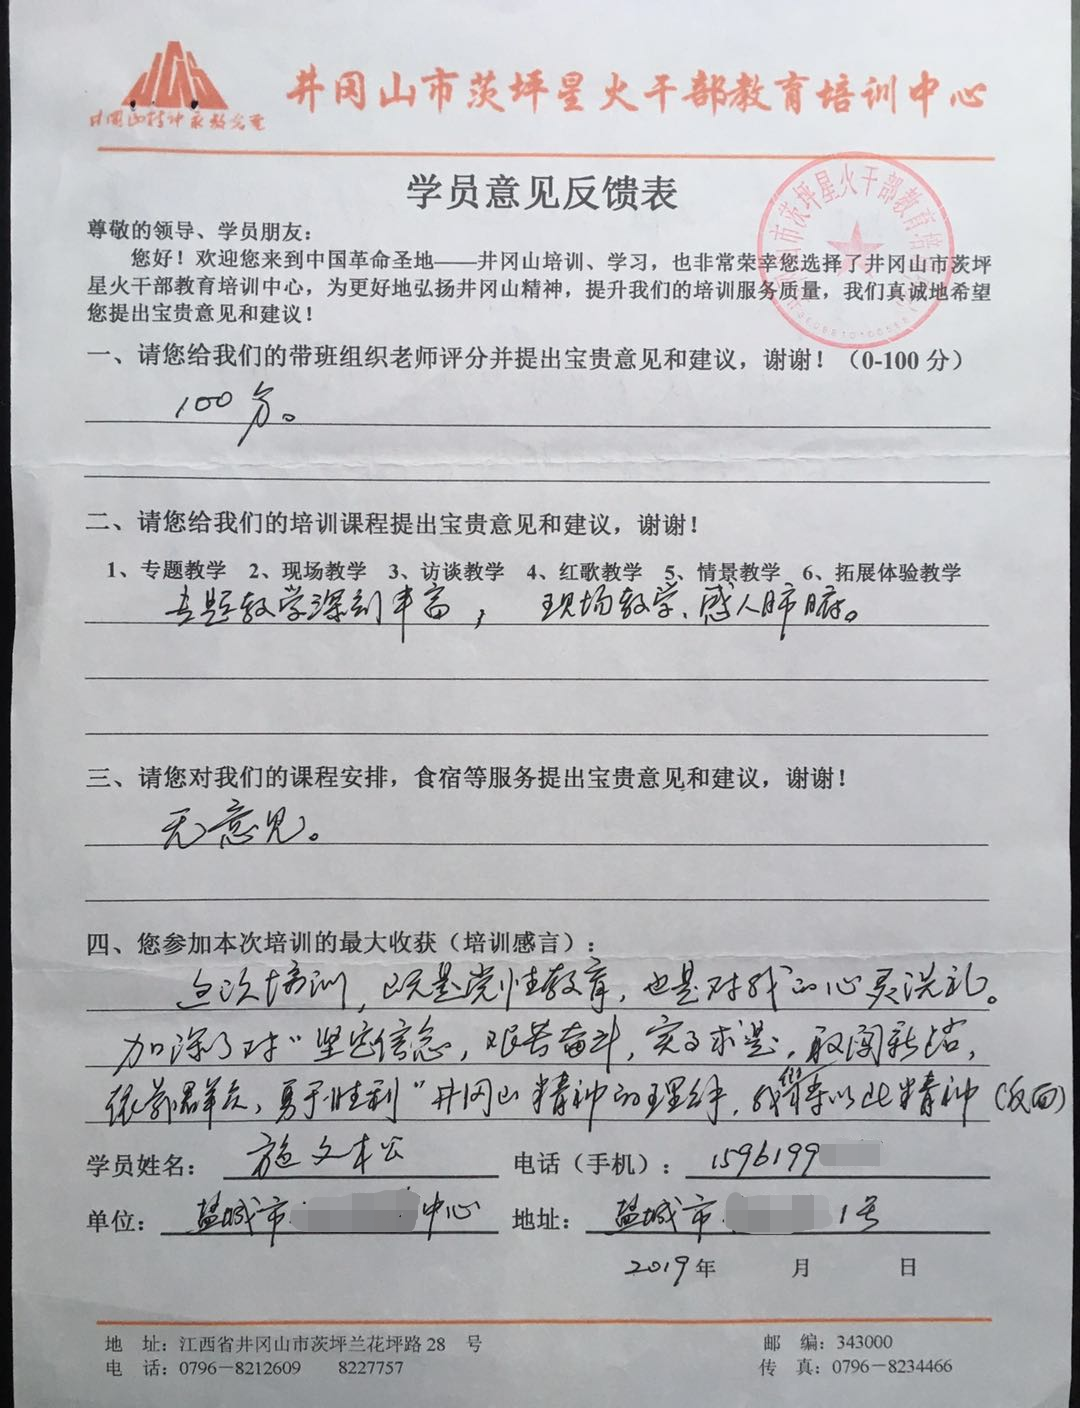 井冈山精神永放光芒
井冈山市茨坪星火干部教育培训中心
学员意见反馈表
尊敬的领导、学员朋友：
您好！欢迎您来到中国革命圣地——井冈山培训、学习，也非常荣幸您选择了井冈山市茨坪
星火干部教育培训中心，为更好地弘扬井冈山精神，提升我们的培训服务质量，我们真诚地希望
您提出宝贵意见和建议！
一、请您给我们的带班组织老师评分并提出宝贵意见和建议，谢谢！（0-100 分）
100分。
二、请您给我们的培训课程提出宝贵意见和建议，谢谢！
1、专题教学 2、现场教学 3、访谈教学 4、红歌教学 5、情景教学 6、拓展体验教学
专题教学深刻丰富，现场教学、感人肺腑。
三、请您对我们的课程安排，食宿等服务提出宝贵意见和建议，谢谢！
无意见。
四、您参加本次培训的最大收获（培训感言）：
这次培训，既是党性教育，也是对我的心灵洗礼。
加深了对“坚定信念，艰苦奋斗，实事求是，敢闯新路，
依靠群众，勇于胜利”井冈山精神的理解，我将以此精神（反面）
学员姓名： 施文 电话（手机）： 1596199
单位： 盐城市 中心 地址： 盐城市 1号
2019年 月 日
地 址：江西省井冈山市茨坪兰花坪路 28 号 邮 编：343000
电 话：0796－8212609 8227757 传 真：0796－8234466